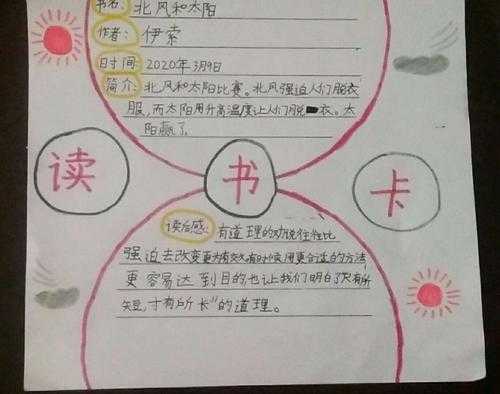 书名: 北风和太阳
作者: 伊索
时间: 2020年3月9日
简介: 北风和太阳比赛。北风强迫人们脱衣
服,而太阳用升高温度让人们脱衣。太
阳赢了
读 书 卡
读后感: 有道理的劝说往往比
强迫去改变更为有效有时候用更合适的方法
更容易达到目的也让我们明白了"尺有所
短,寸有所长"的道理。